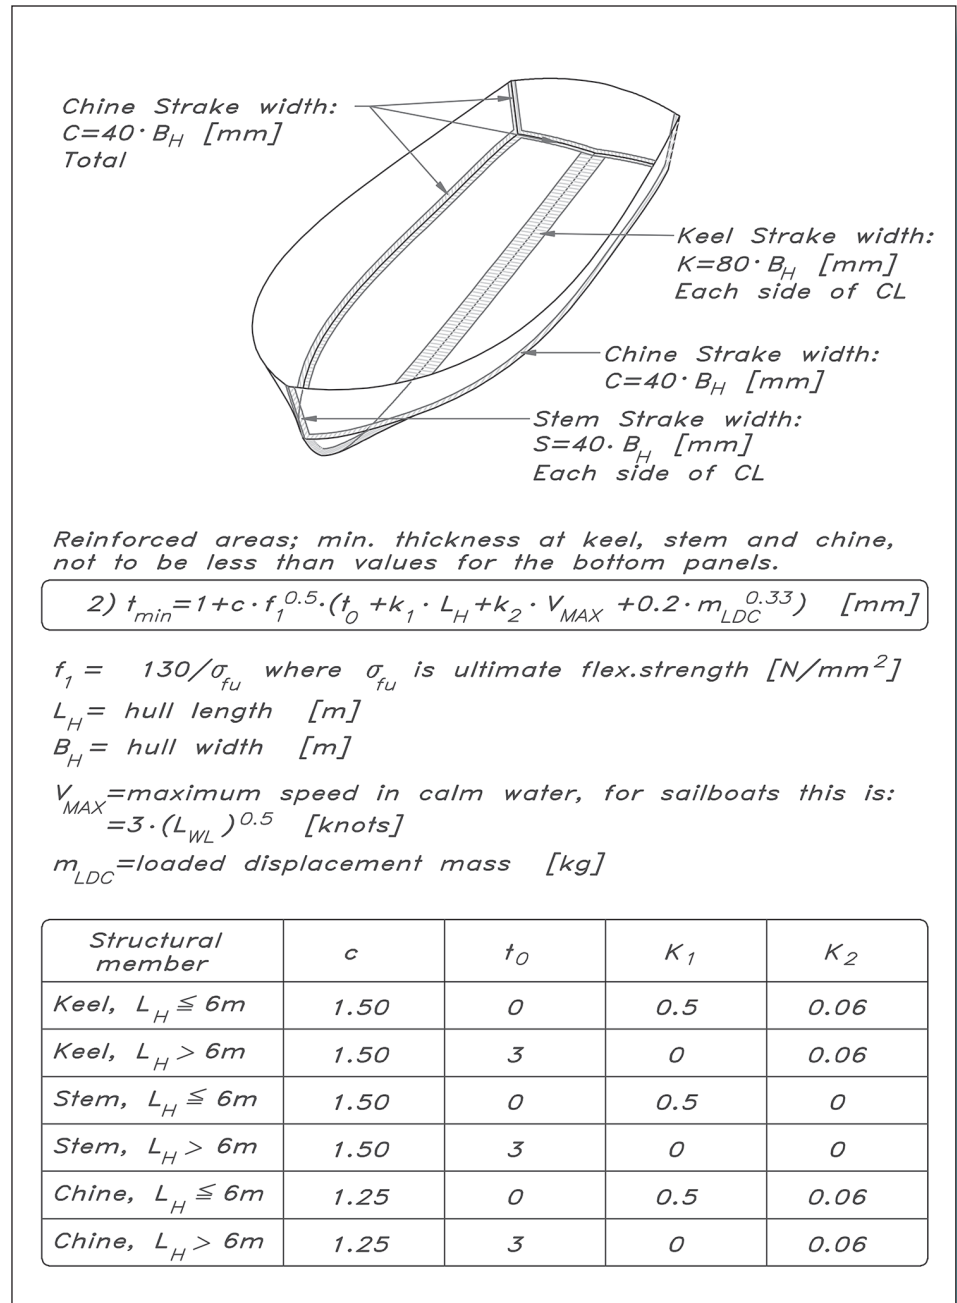 Chine Strake width:
C=40·B_H [mm]
Total
Keel Strake width:
K=80·B_H [mm]
Each side of CL
Chine Strake width:
C=40·B_H [mm]
Stem Strake width:
S=40·B_H [mm]
Each side of CL
Reinforced areas; min. thickness at keel, stem and chine,
not to be less than values for the bottom panels.
2) t_min=1+c·f_1^0.5·(t_0+k_1·L_H+k_2·V_MAX+0.2·m_LDC^0.33) [mm]
f_1= 130/σ_fu where σ_fu is ultimate flex.strength [N/mm²]
L_H= hull length [m]
B_H= hull width [m]
V_MAX=maximum speed in calm water, for sailboats this is:
=3·(L_WL)^0.5 [knots]
m_LDC=loaded displacement mass [kg]
Structural member c t_0 K_1 K_2
Keel, L_H ≦ 6m 1.50 0 0.5 0.06
Keel, L_H > 6m 1.50 3 0 0.06
Stem, L_H ≦ 6m 1.50 0 0.5 0
Stem, L_H > 6m 1.50 3 0 0
Chine, L_H ≦ 6m 1.25 0 0.5 0.06
Chine, L_H > 6m 1.25 3 0 0.06